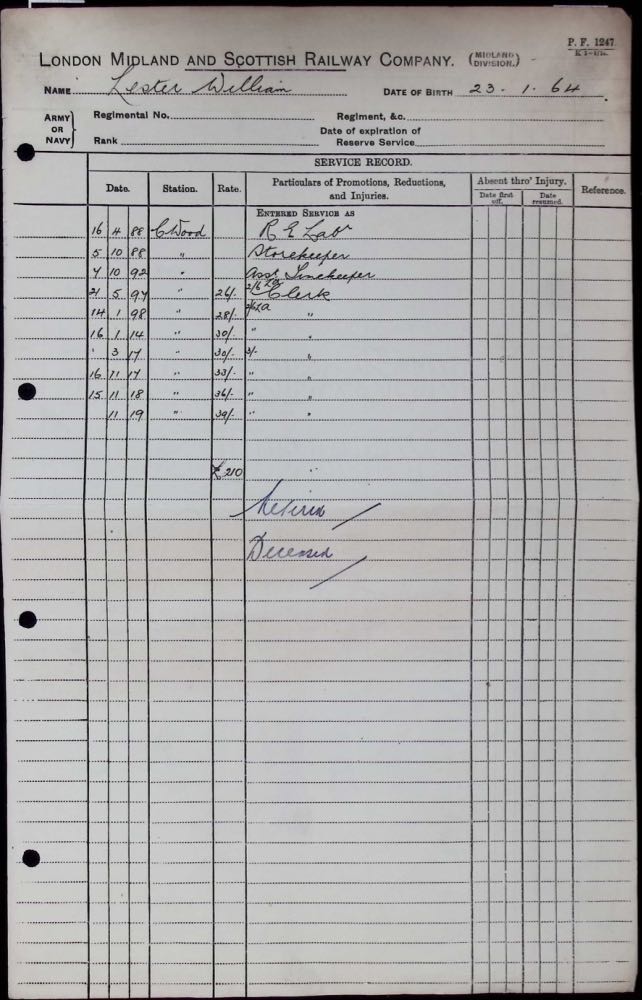 P. F. 1247
LONDON MIDLAND AND SCOTTISH RAILWAY COMPANY. (MIDLAND DIVISION.)
NAME Lester William DATE OF BIRTH 23 . 1 . 64
ARMY OR NAVY} Regimental No. Regiment, &c.
Rank Date of expiration of Reserve Service
SERVICE RECORD.
Date. Station. Rate. Particulars of Promotions, Reductions, and Injuries. Absent thro' Injury. Reference.
Date first off. Date resumed.
ENTERED SERVICE AS
16 4 88 C Wood R E Labr
5 10 88 " Storekeeper
10 92 " Asst Timekeeper
21 5 97 " 26/- 2/6 LA Clerk
14 1 98 " 28/- 2/6 LA "
16 1 14 " 30/- " "
" 3 17 " 30/- 3/- "
16 11 17 " 33/- " "
15 11 18 " 36/- " "
11 19 " 39/- " "
£210 "
Retired
Deceased